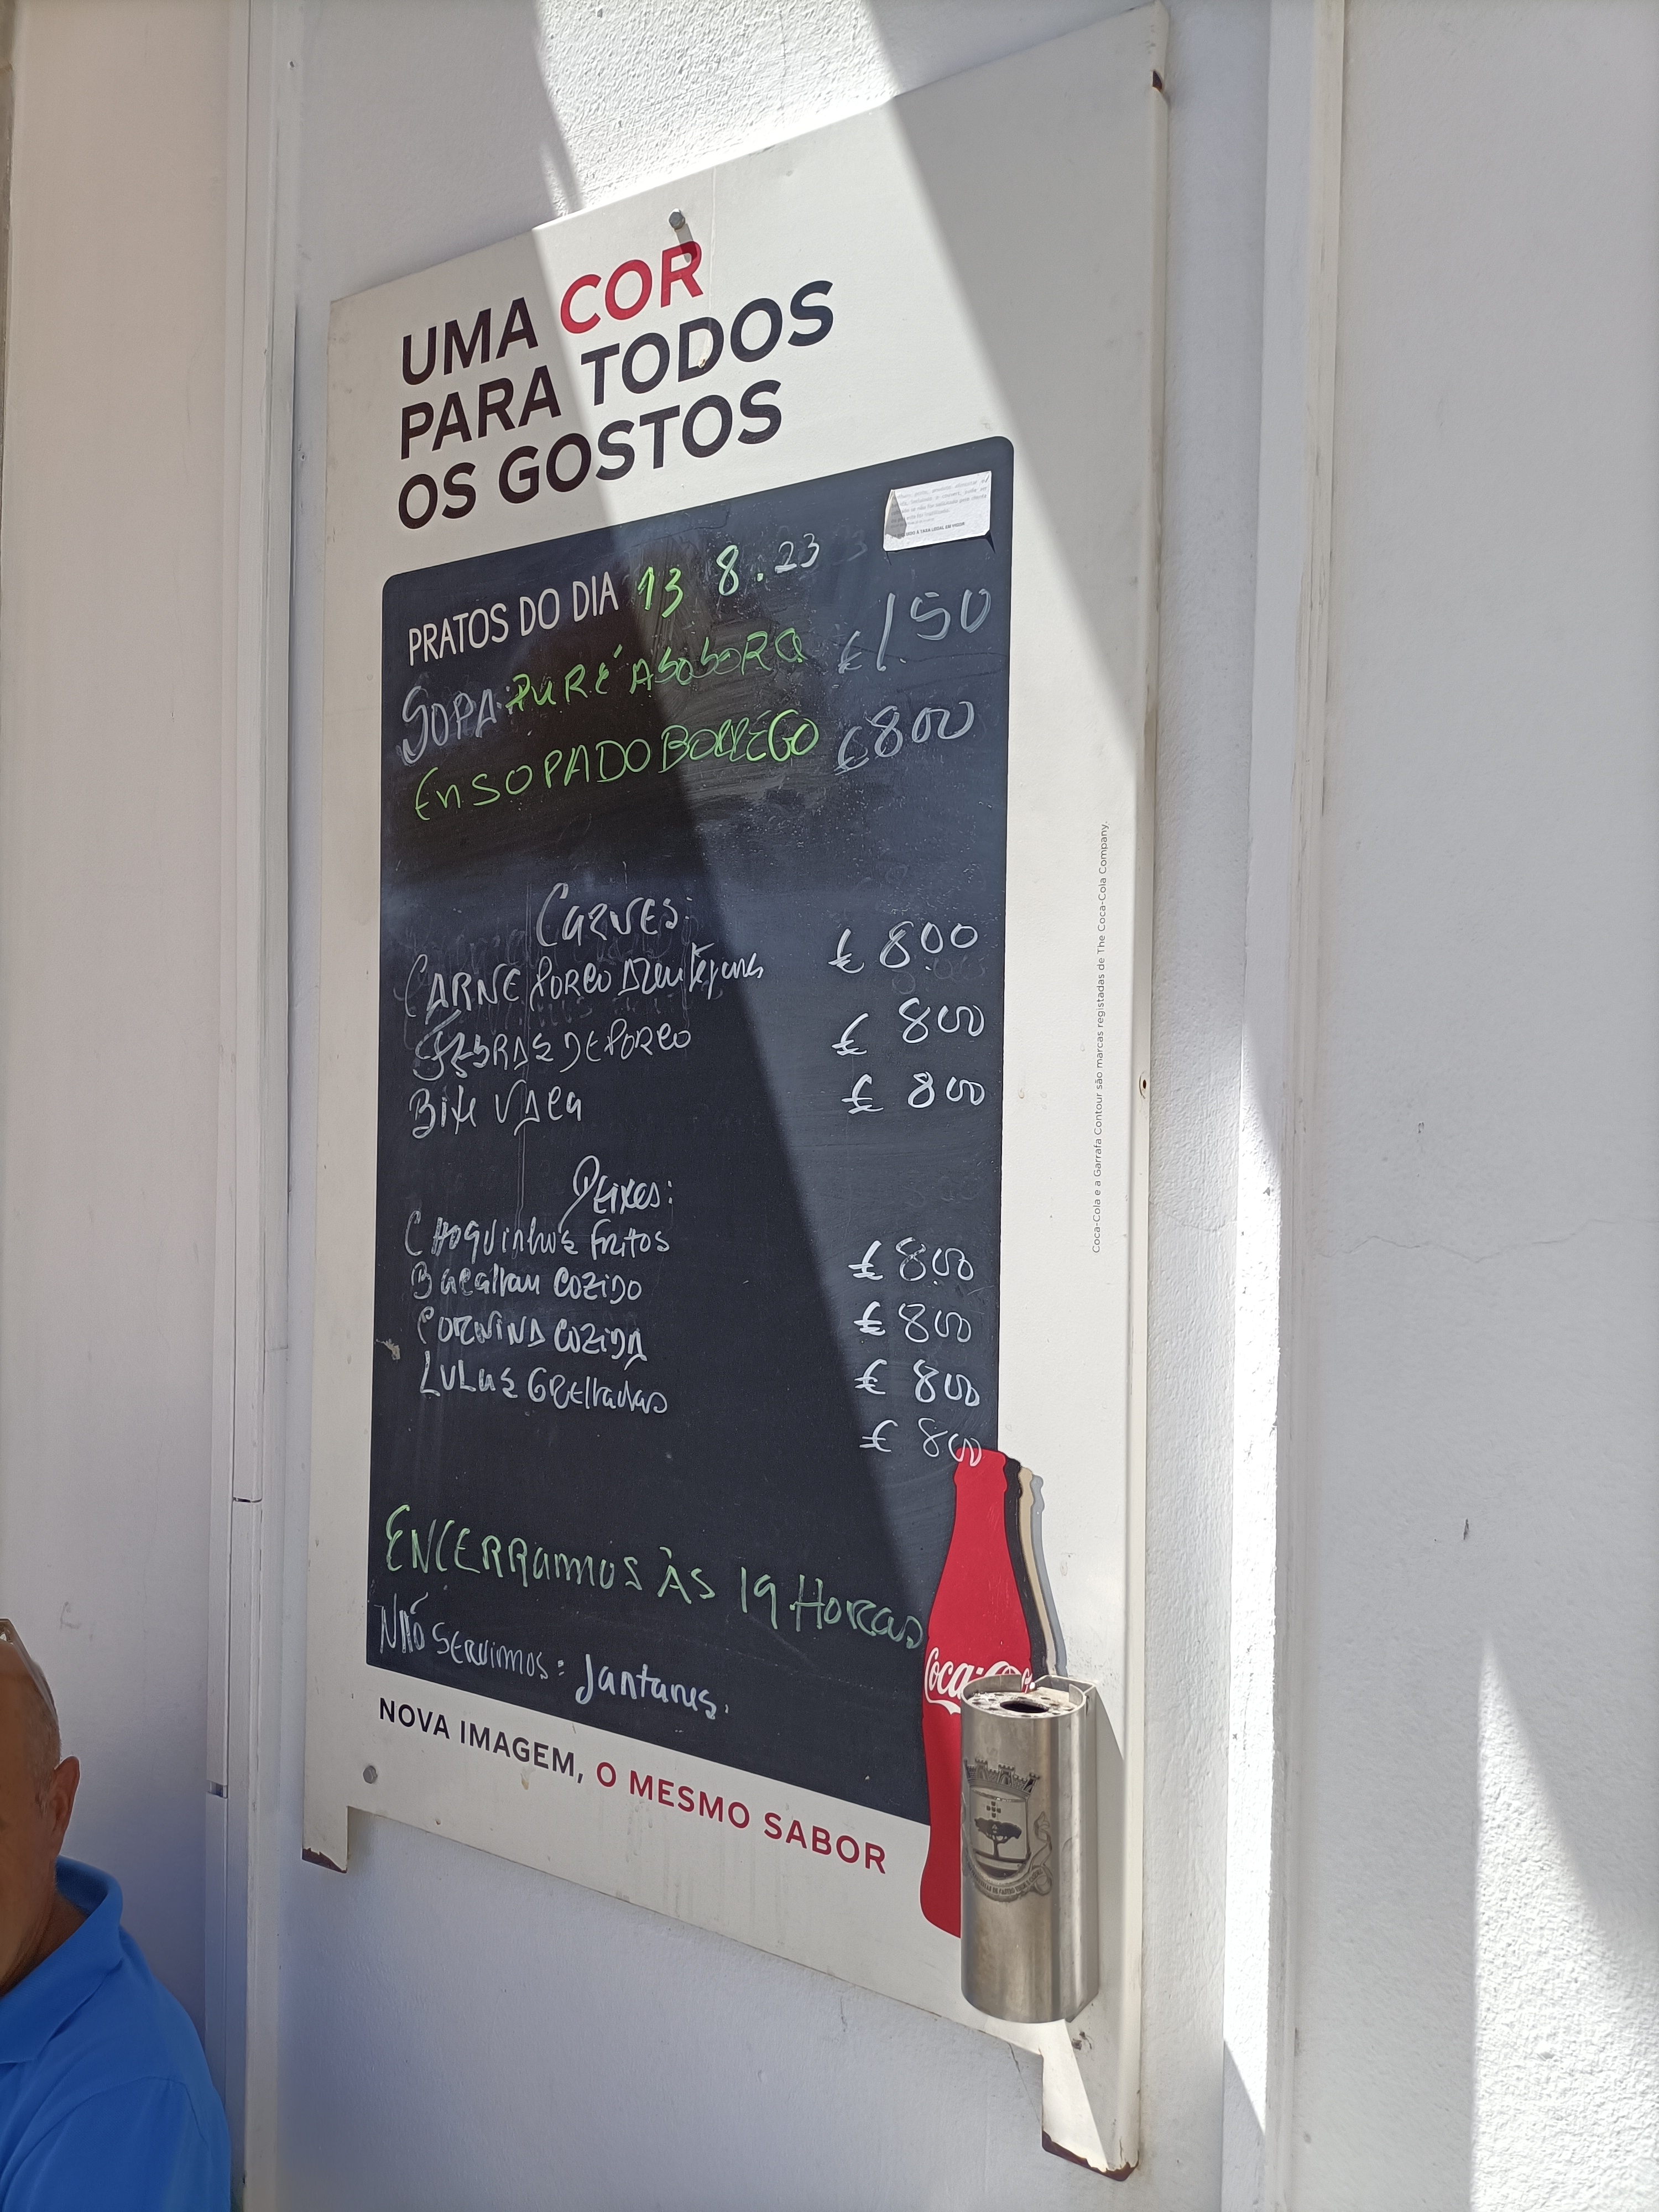 UMA COR
PARA TODOS
OS GOSTOS
PRATOS DO DIA 13 8.23
SOPA: PURÉ ABOBORA €1.50
ENSOPADO BORREGO €800
CARNES:
CARNE PORCO ALENTEJANA € 8.00
FEBRAS DE PORCO € 800
BIFE VACA € 800
PEIXES:
CHOQUINHOS FRITOS € 8.00
BACALHAU COZIDO € 800
CORVINA COZIDA € 800
LULAS GRELHADAS € 800
ENCERRAMOS ÀS 19 HORAS
NÃO SERVIMOS: JANTARES.
NOVA IMAGEM, O MESMO SABOR
Coca-Cola
Coca-Cola e a Garrafa Contour são marcas registadas de The Coca-Cola Company.